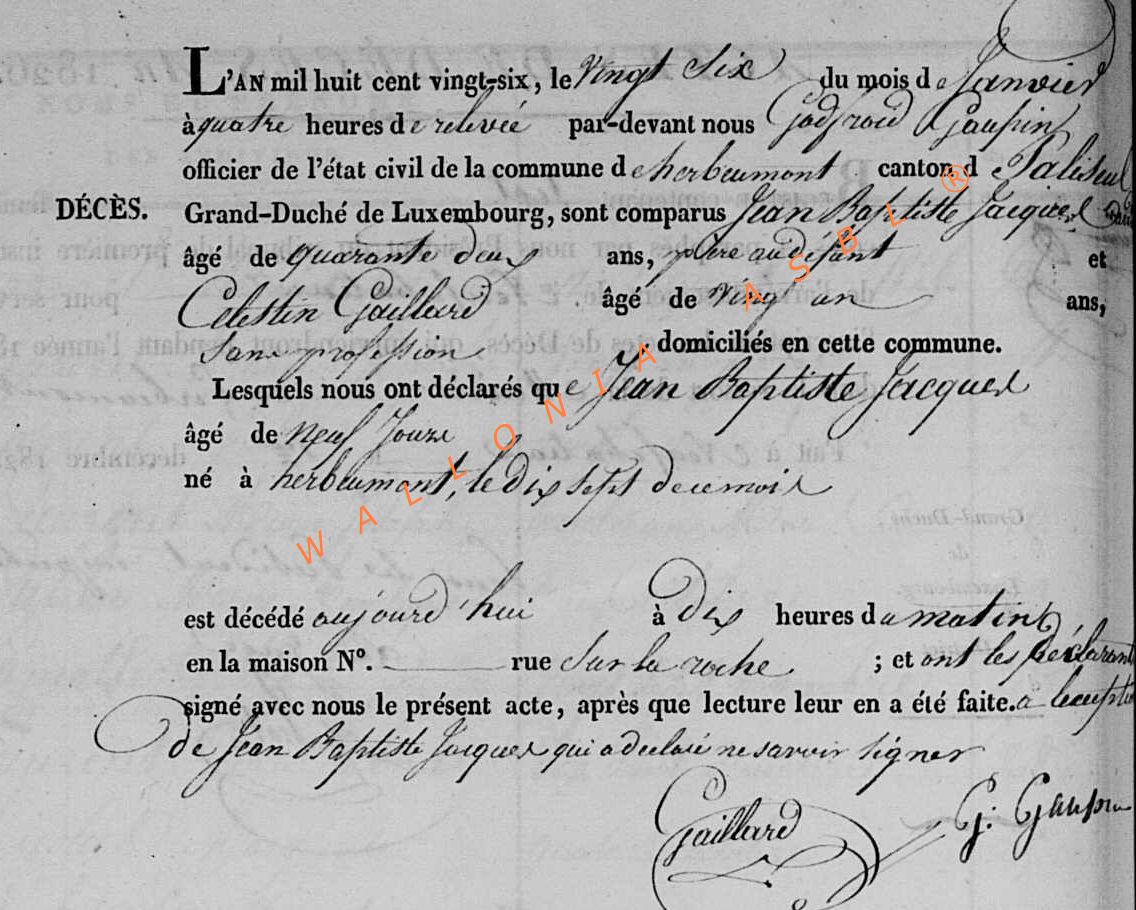 L'AN mil huit cent vingt-six, le vingt Six du mois de Janvier
à quatre heures de relevée par-devant nous Godfroid Gaupin
officier de l'état civil de la commune d'herbeumont canton d Paliseul
DÉCÈS. Grand-Duché de Luxembourg, sont comparus Jean Baptiste Jacques
âgé de quarante deux ans, père au défunt et
Celestin Gaillard âgé de vingt un ans,
Sans profession, domiciliés en cette commune.
Lesquels nous ont déclarés que Jean Baptiste Jacques
âgé de neuf Jours
né à herbeumont, le dix sept de ce mois
est décédé aujourd'hui à dix heures du matin
en la maison N°. rue Sur la roche ; et ont les déclarants
signé avec nous le présent acte, après que lecture leur en a été faite. a
de Jean Baptiste Jacques qui a declaré ne savoir signer
Gaillard G: Gaupin
WALLONIA ASBL ®